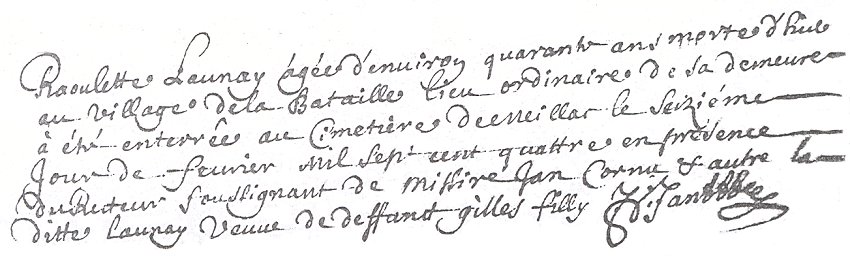 Raoulette Launay âgée d'environ quarante ans morte d'hier
au village de la Bataille lieu ordinaire de sa demeure
à été enterrée au Cimetière de Meillac le Seiziéme
Jour de fevrier Mil Sept cent quattre en présence
du Recteur soussignant de Missire Jan Cornu & autre la
ditte Launay veuve de deffunct gilles filly